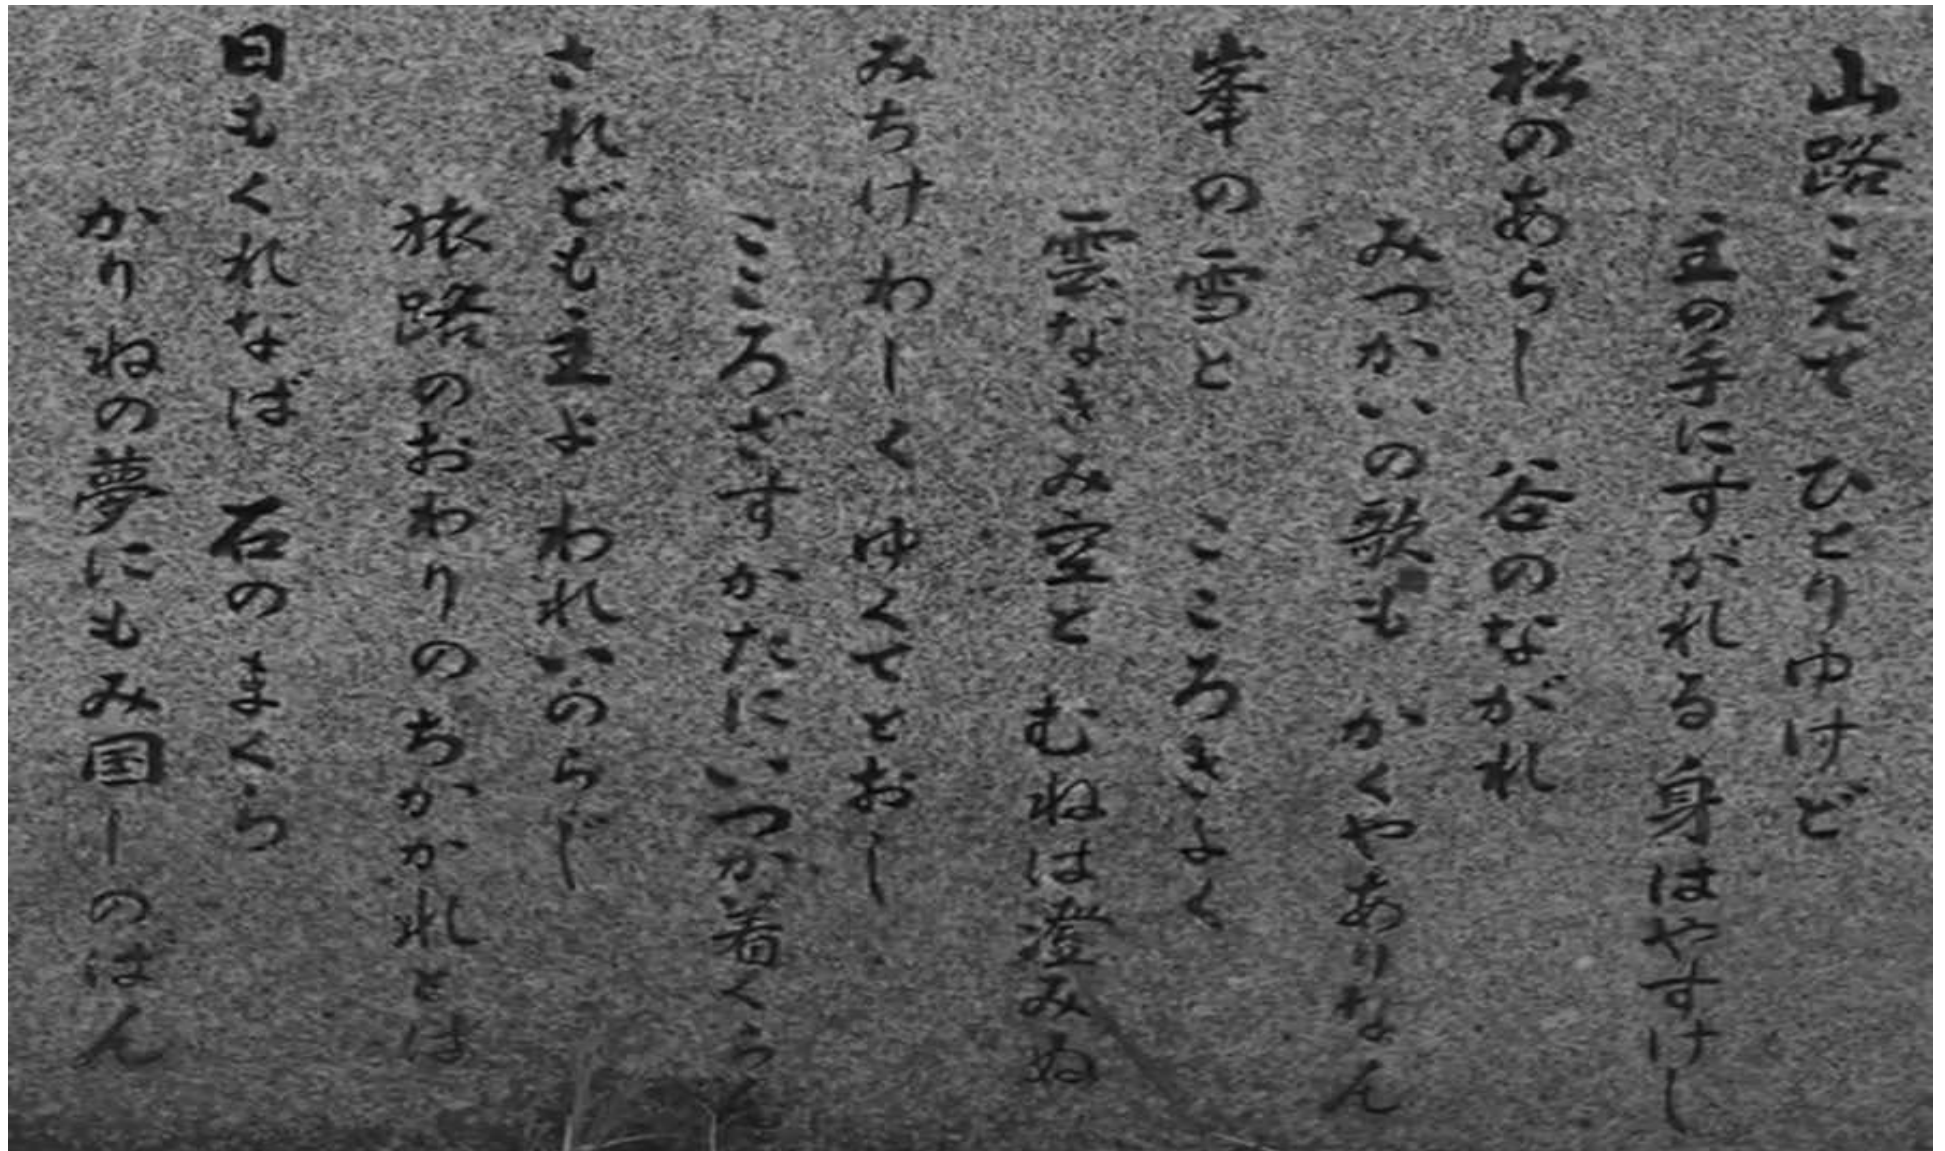 山路こえて ひとりゆけど
主の手にすがれる身はやすけし
松のあらし 谷のながれ
みつかいの歌も かくやありなん
峯の雪と こころきよく
雲なきみ空と むねは澄みぬ
みちけわしく ゆくてとおし
こころざすかたに いつか着くらん
されども主よ われいのらじ
旅路のおわりのちかかれとは
日もくれなば 石のまくら
かりねの夢にもみ国しのばん